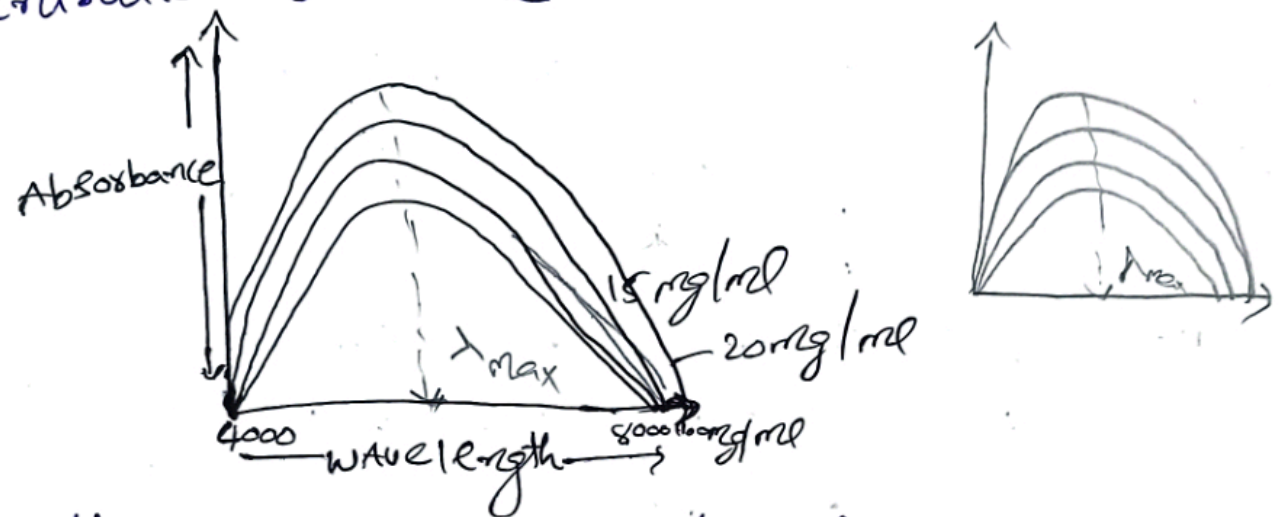 Absorbance
15 mg/ml
20mg/ml
λmax
λmax
4000
8000
mg/ml
wavelength